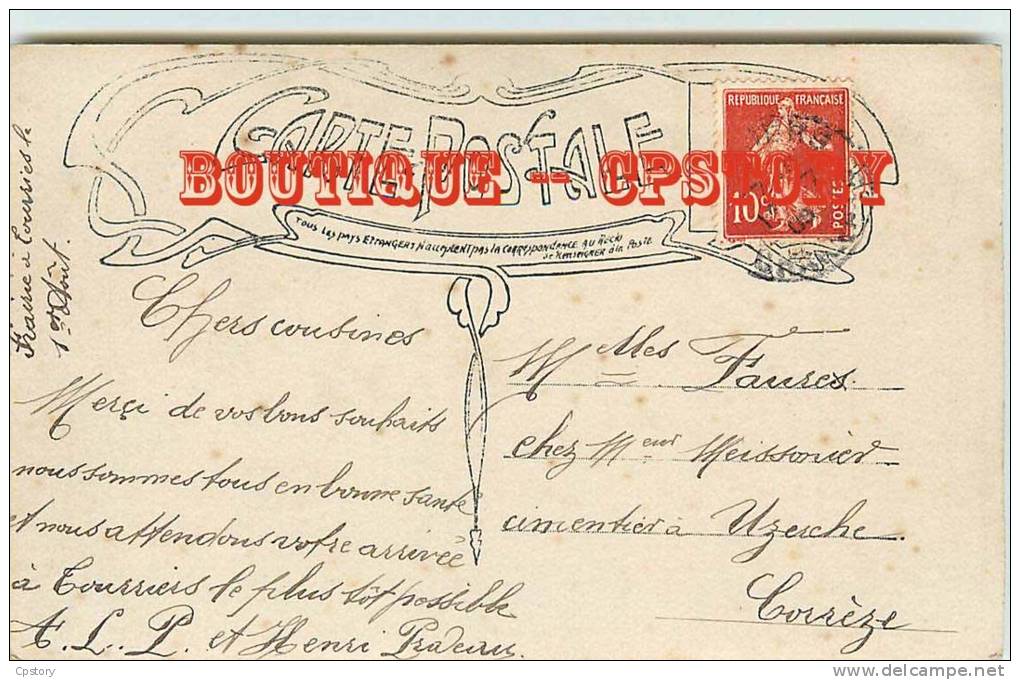 CARTE POSTALE
BOUTIQUE - CPSTORY
TOUS LES PAYS ETRANGERS N'ACCEPTENT PAS LA CORRESPONDANCE AU RECTO
SE RENSEIGNER à la POSTE
REPUBLIQUE FRANÇAISE
10c
POSTE
09
1er Août.
Chers cousines
Merçi de vos bons souhaits
nous sommes tous en bonne santé
et nous attendons votre arrivée
à Tourriers le plus tôt possible
A. L. P. et Henri Pradeau.
Mlles Faures.
chez Meur Meissonier
cimentier à Uzerche.
Corrèze
Cpstory
delcampe.net